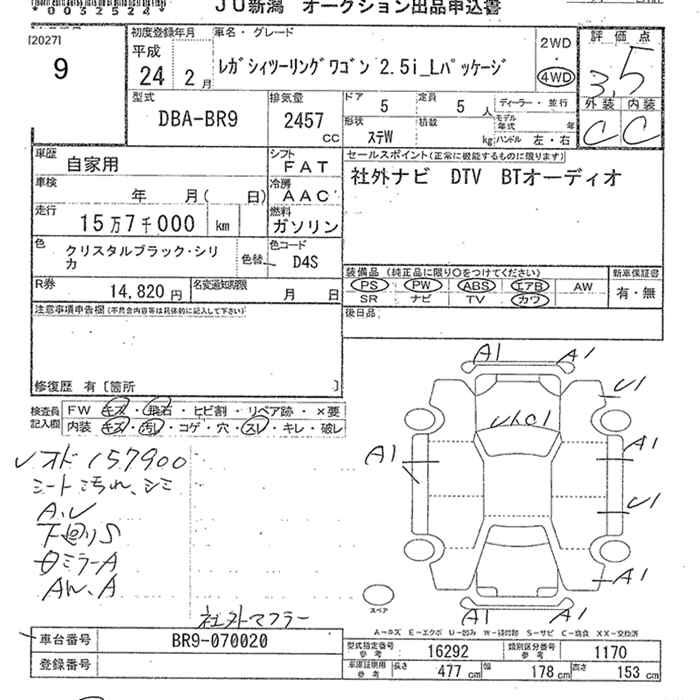 *00325244*
JU新潟 オークション出品申込書
[2027]
9
初度登録年月
平成
24 2月
車名・グレード
レガシィツーリングワゴン 2.5i_Lパッケージ
2WD
4WD
評価点
3.5
外装 内装
C C
型式
DBA-BR9
排気量
2457
CC
ドア
5
定員
5 人
形状
ステW
積載
kg
ディーラー・並行
モデル年式 年
ハンドル 左・右
車歴
自家用
車検
年 月( 日)
走行
15万7千000 km
色
クリスタルブラック・シリカ
色替
R券
14,820 円
名変通知期限
月 日
シフト
FAT
冷房
AAC
燃料
ガソリン
色コード
D4S
セールスポイント(正常に機能するものに限ります)
社外ナビ DTV BTオーディオ
装備品 (純正品に限り○をつけてください)
PS PW ABS エアB AW
SR ナビ TV カワ
新車保証書
有・無
後日品
注意事項申告欄 (不具合内容等は具体的に記入して下さい)
修復歴 有 [箇所 ]
検査員記入欄
FW キズ・飛石・ヒビ割・リペア跡・×要
内装 キズ・汚レ・コゲ・穴・スレ・キレ・破レ
レオド 157900
シート汚れ、シミ
A.U
下廻りS
社外マフラー
A1 A1
U1
A1
A1
U1
A1
A1 A1
スペア
A-キズ E-エクボ U-凹み W-補修跡 S-サビ C-腐食 XX-交換済
車台番号
BR9-070020
登録番号
型式指定番号 参考
16292
類別区分番号 参考
1170
車庫証明用 参考
長さ 477 cm 幅 178 cm 高さ 153 cm